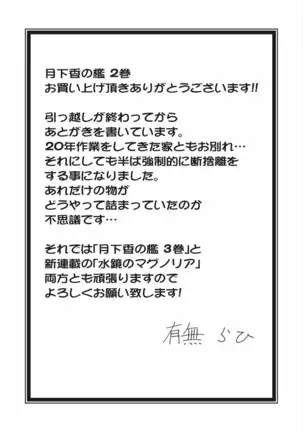 月下香の檻 2巻
お買い上げ頂きありがとうございます!!
引っ越しが終わってから
あとがきを書いています。
20年作業をしてきた家ともお別れ…
それにしても半ば強制的に断捨離を
する事になりました。
あれだけの物が
どうやって詰まっていたのか
不思議です…
それでは「月下香の檻 3巻」と
新連載の「水鏡のマグノリア」
両方とも頑張りますので
よろしくお願い致します!
有無 らひ